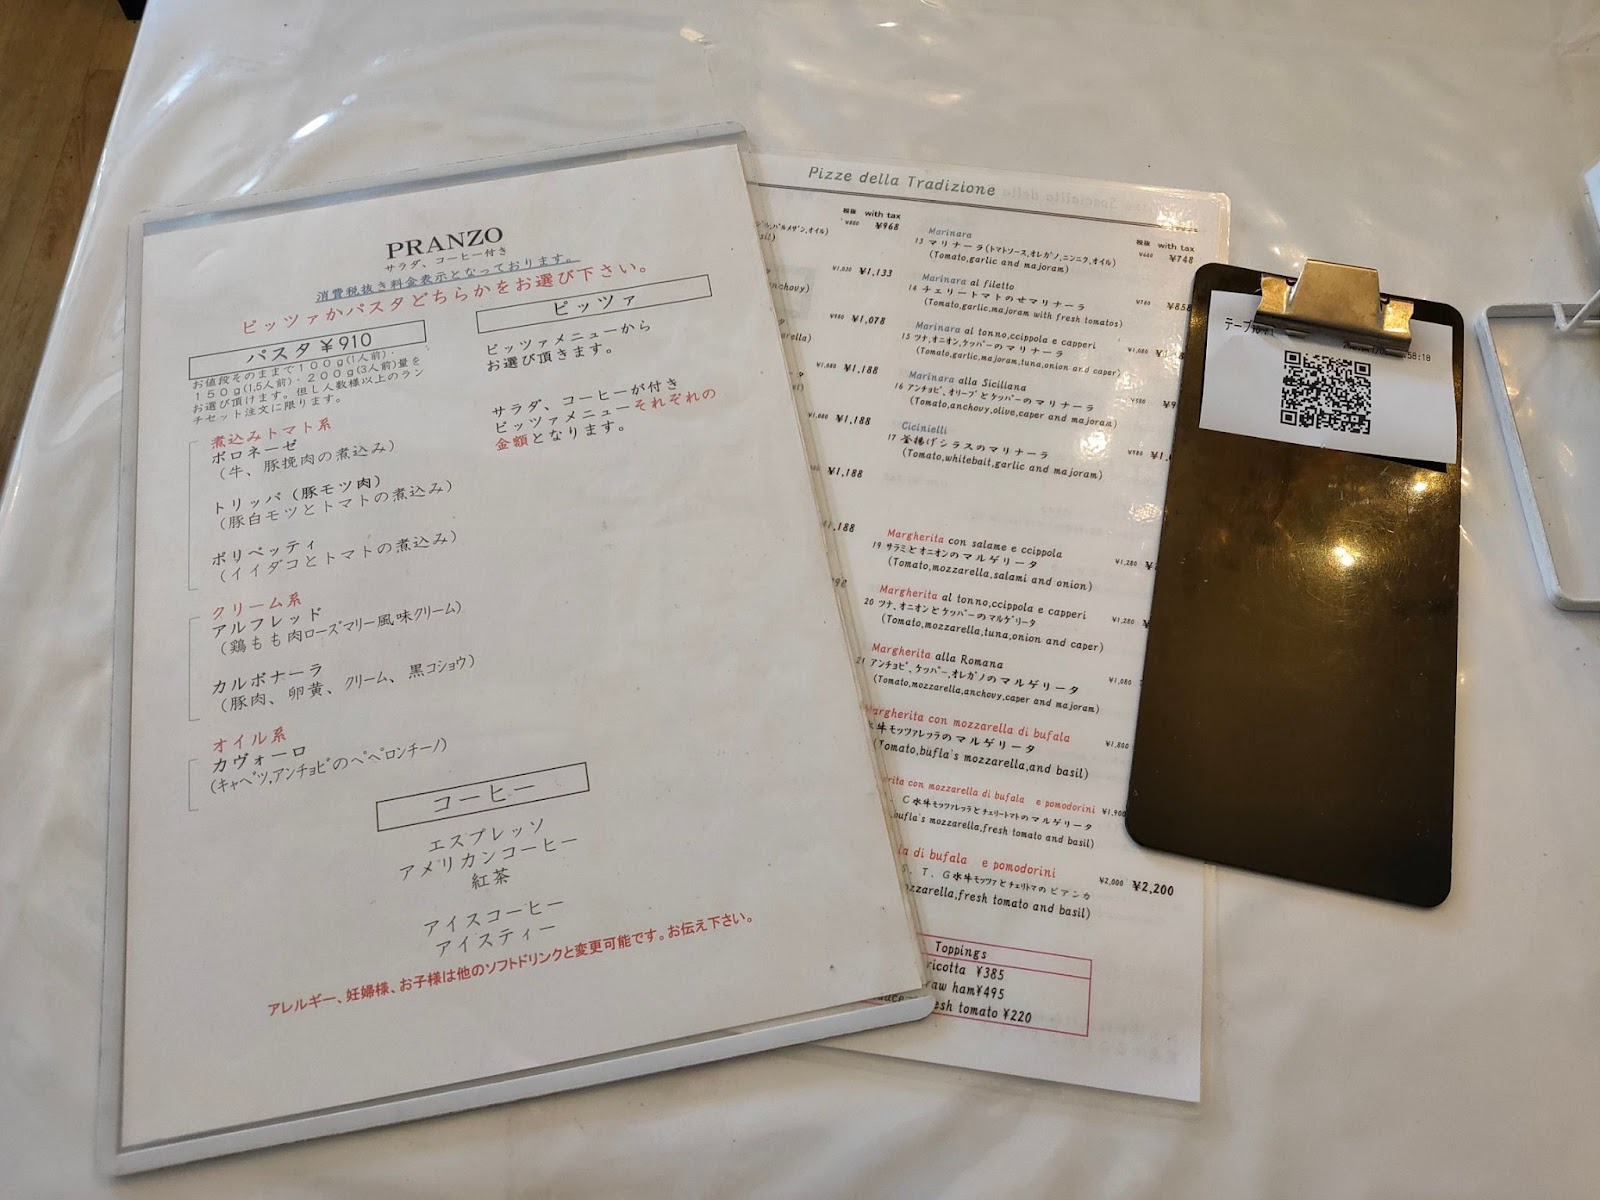 PRANZO
サラダ、コーヒー付き
消費税抜き料金表示となっております。
ピッツァかパスタどちらかをお選び下さい。
パスタ ¥910
お値段そのままで100g(1人前)・
150g(1,5人前)・200g(3人前)量を
お選び頂けます。但し人数様以上のラン
チセット注文に限ります。
煮込みトマト系
ボロネーゼ
(牛、豚挽肉の煮込み)
トリッパ(豚モツ肉)
(豚白モツとトマトの煮込み)
ポリペッティ
(イイダコとトマトの煮込み)
クリーム系
アルフレッド
(鶏もも肉ローズマリー風味クリーム)
カルボナーラ
(豚肉、卵黄、クリーム、黒コショウ)
オイル系
カヴォーロ
(キャベツ,アンチョビのペペロンチーノ)
ピッツァ
ピッツァメニューから
お選び頂きます。
サラダ、コーヒーが付き
ピッツァメニューそれぞれの
金額となります。
コーヒー
エスプレッソ
アメリカンコーヒー
紅茶
アイスコーヒー
アイスティー
アレルギー、妊婦様、お子様は他のソフトドリンクと変更可能です。お伝え下さい。
Pizze della Tradizione
税抜 with tax
¥880 ¥968
¥1,030 ¥1,133
¥980 ¥1,078
¥1,080 ¥1,188
¥1,080 ¥1,188
¥1,188
¥1,188
税抜 with tax
Marinara
13 マリナーラ(トマトソース,オレガノ,ニンニク,オイル) ¥680 ¥748
(Tomato,garlic and majoram)
Marinara al filetto
14 チェリートマトのせマリナーラ ¥780 ¥858
(Tomato,garlic,majoram with fresh tomatos)
Marinara al tonno,ccippola e capperi
15 ツナ,オニオン,ケッパーのマリナーラ ¥1,080
(Tomato,garlic,majoram,tuna,onion and caper)
Marinara alla Siciliana
16 アンチョビ、オリーブとケッパーのマリナーラ
(Tomato,anchovy,olive,caper and majoram)
Cicinielli
17 釜揚げシラスのマリナーラ ¥980
(Tomato,whitebait,garlic and majoram)
Margherita con salame e ccippola
19 サラミとオニオンのマルゲリータ ¥1,280
(Tomato,mozzarella,salami and onion)
Margherita al tonno,ccippola e capperi
20 ツナ、オニオンとケッパーのマルゲリータ ¥1,280
(Tomato,mozzarella,tuna,onion and caper)
Margherita alla Romana
21 アンチョビ、ケッパー,オレガノのマルゲリータ ¥1,080
(Tomato,mozzarella,anchovy,caper and majoram)
Margherita con mozzarella di bufala
水牛モッツァレッラのマルゲリータ ¥1,800
(Tomato,bufla's mozzarella,and basil)
con mozzarella di bufala e pomodorini ¥1,900
水牛モッツァレッラとチェリートマトのマルゲリータ
bufla's mozzarella,fresh tomato and basil)
di bufala e pomodorini
T. G水牛モッツァとチェリトマのビアンカ ¥2,000 ¥2,200
fresh tomato and basil)
Toppings
ricotta ¥385
raw ham¥495
tomato ¥220
58:18